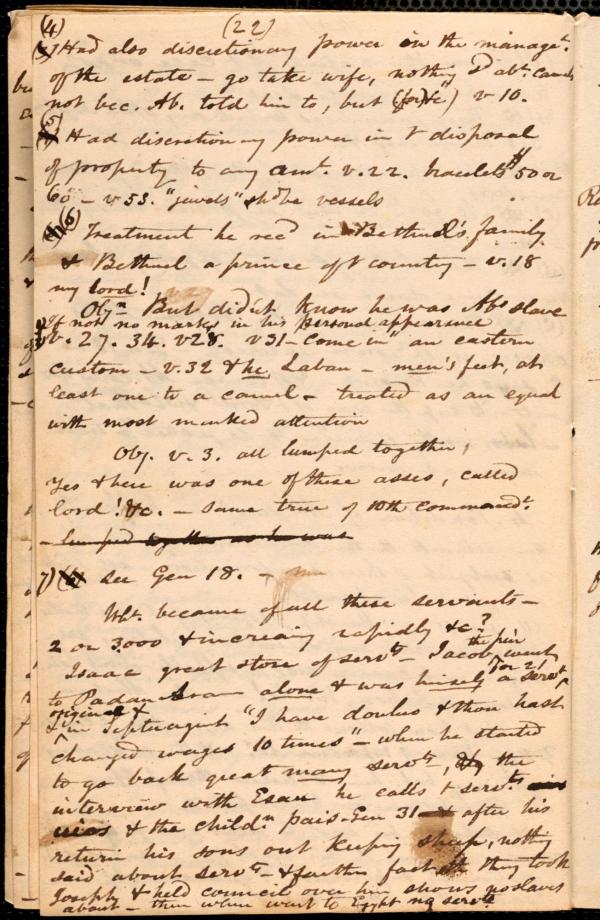 (4) (22)
Had also discretionary power in the managet.
of the estate – go take wife, nothing sd abt. camels
not bec. Ab. told him to, but v 10.
(5) Had discretionary power in t disposal
of property to any amt. v. 22. bracelets $50 or
60 – v 53. "jewels" shd be vessels
(6) Treatment he recd in Bethuel's family
& Bethuel a prince oft country – v. 18
my lord!
Objn But didn't know he was Abs slave
If not no marks in his personal appearance
v. 27. 34. v28. v31 – Come in" an eastern
custom – v. 32 & he, Laban – men's feet, at
least one to a camel – treated as an equal
with most marked attention
Obj. v. 3. all lumped together,
Yes & here was one of these asses, called
lord! &c. – same true of 10th commandt.
– lumped together as he was
7) see Gen 18. –
Wht. became of all these servants –
2 or 3000 & increasing rapidly &c?
Isaac great store of servts – Jacob went
to Padan Aram alone & was himself a servt
original &
in Septuagint "I have doulos & thou hast
changed wages 10 times" – when he started
to go back great many servts, the
interview with Esau he calls t servts
& the childn pais – Gen 31 – & after his
return his sons out keeping sheep, nothing
said about servts – & farther fact they took
Joseph & held council over him shows no slaves
about – then when went to Egypt no servts